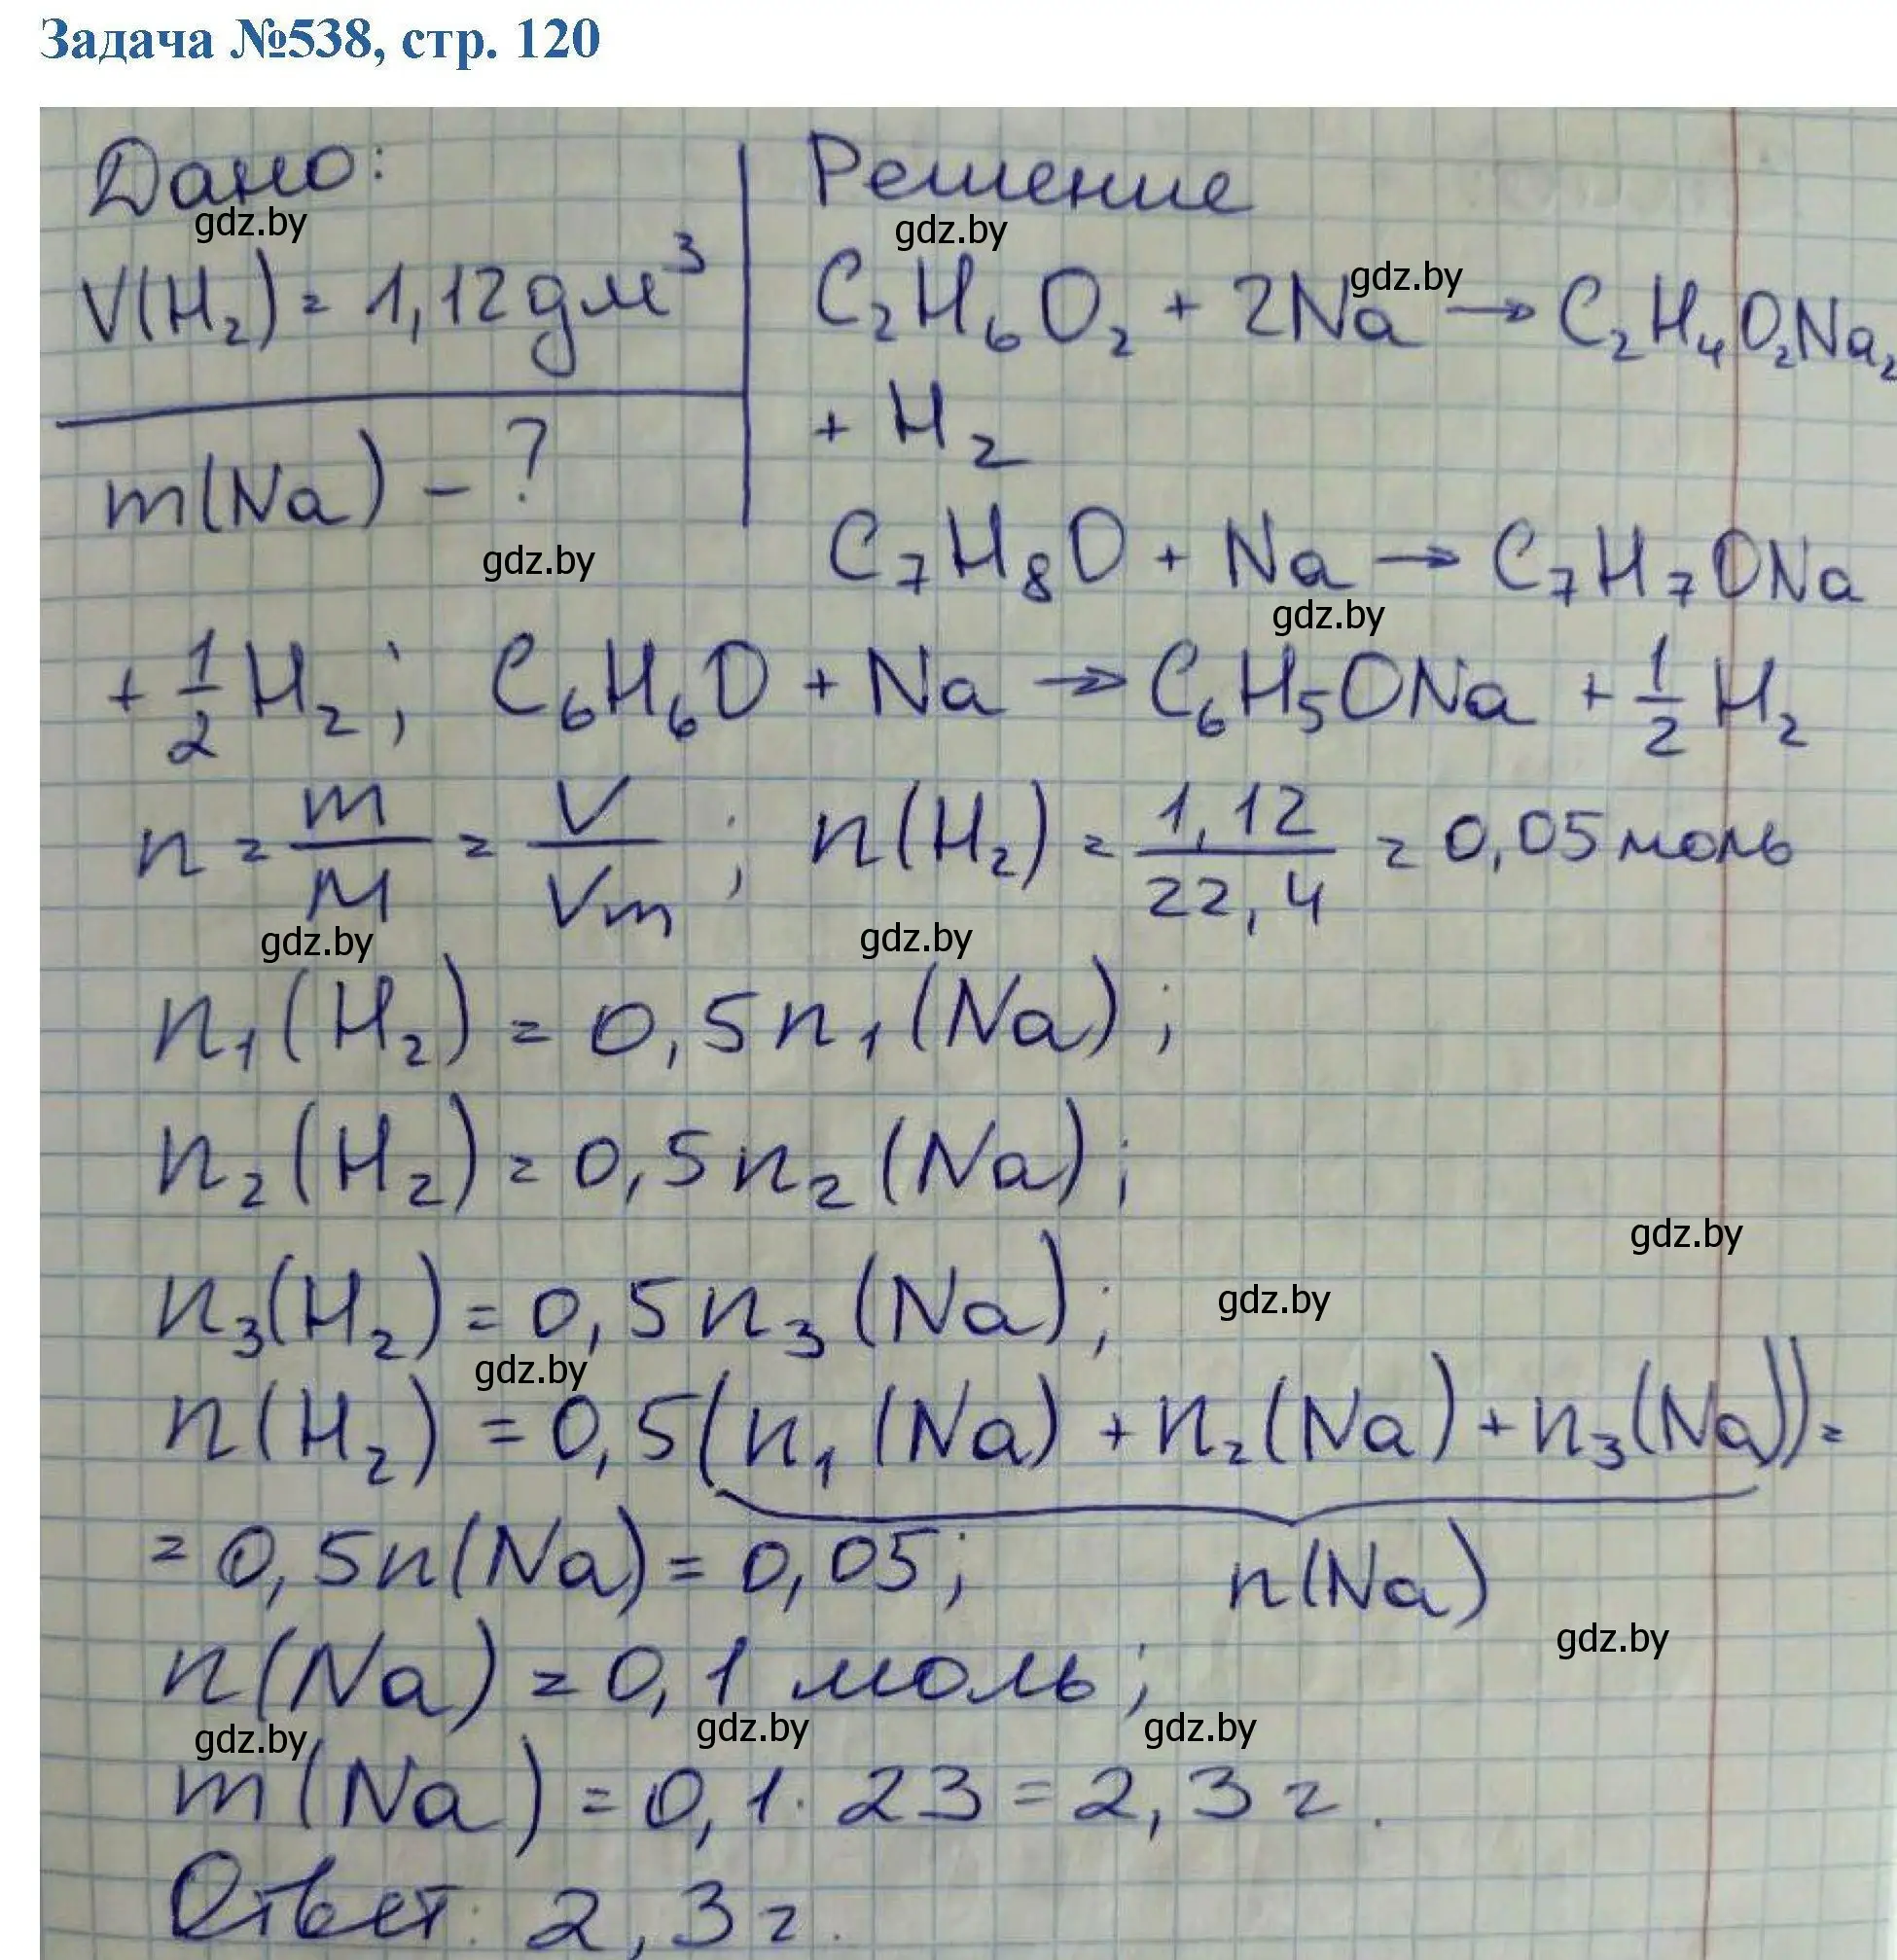 Задача №538, стр. 120
Дано:
V(H₂) = 1,12 дм³
m(Na) - ?
Решение
C₂H₆O₂ + 2Na → C₂H₄O₂Na₂
+ H₂
C₇H₈O + Na → C₇H₇ONa
+ 1/2 H₂; C₆H₆O + Na → C₆H₅ONa + 1/2 H₂
n = m/M = V/Vm; n(H₂) = 1,12/22,4 = 0,05 моль
n₁(H₂) = 0,5n₁(Na);
n₂(H₂) = 0,5n₂(Na);
n₃(H₂) = 0,5n₃(Na);
n(H₂) = 0,5(n₁(Na) + n₂(Na) + n₃(Na)) =
= 0,5n(Na) = 0,05; n(Na)
n(Na) = 0,1 моль;
m(Na) = 0,1 · 23 = 2,3 г.
Ответ: 2,3 г.
gdz.by
gdz.by
gdz.by
gdz.by
gdz.by
gdz.by
gdz.by
gdz.by
gdz.by
gdz.by
gdz.by
gdz.by
gdz.by
gdz.by